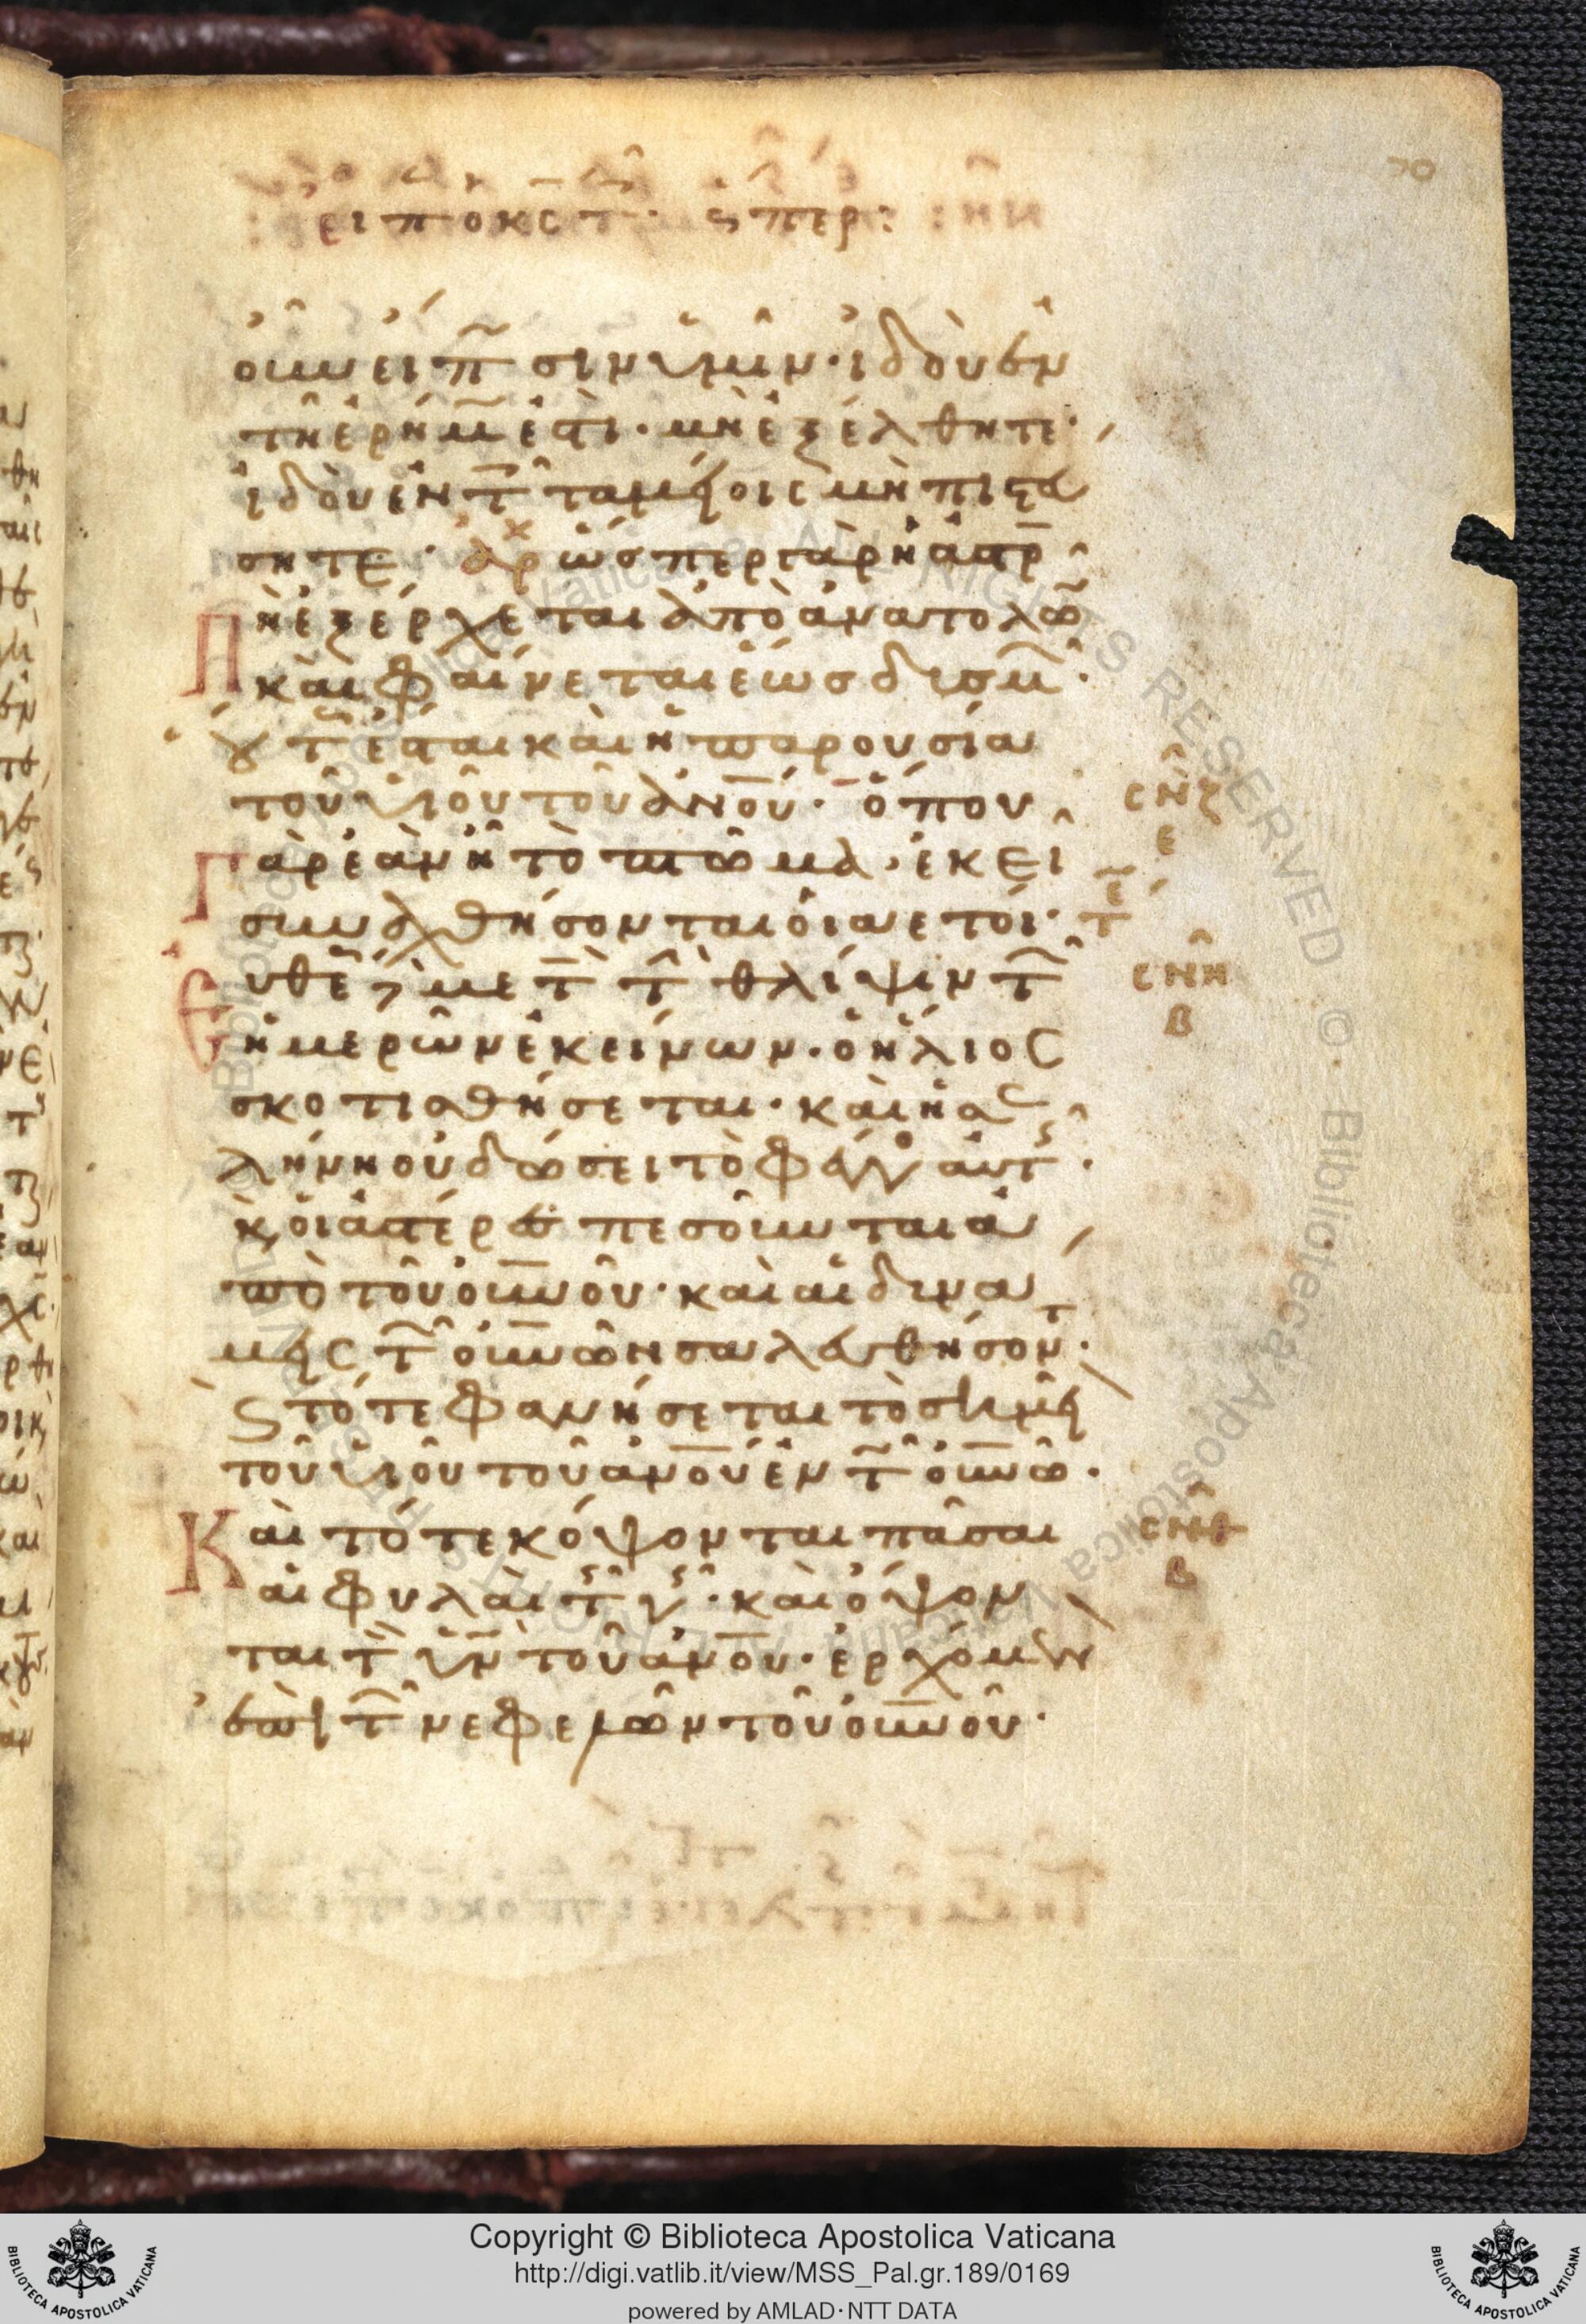 70
οὖν εἴπωσιν ὑμῖν· ἰδοὺ ἐν
τῆ ἐρήμω ἐστὶ· μὴ ἐξέλθητε·
ἰδοὺ ἐν τοῖς ταμείοις μὴ πιστεύ
σητε· ἀρχ ὥσπερ γὰρ ἡ ἀστρ
πὴ ἐξέρχεται ἀπὸ ἀνατολῶν
καὶ φαίνεται ἕως δυσμῶν·
οὕτως ἔσται καὶ ἡ παρουσία
τοῦ υἱοῦ τοῦ ἀνου· ὅπου
γὰρ ἐὰν ἦ τὸ πτῶμα· ἐκεῖ
συναχθήσονται οἱ ἀετοί·
Εὐθέως δὲ μετὰ τὴν θλίψιν τῶν
ἡμερῶν ἐκείνων· ὁ ἥλιος
σκοτισθήσεται· καὶ ἡ σε
λήνη οὐ δώσει τὸ φέγγος αὐτῆς·
κ οἱ ἀστέρες πεσοῦνται ἀ
πὸ τοῦ οὐνου· καὶ αἱ δυνά
μεις τῶν οὐνων σαλευθήσονται·
κ τότε φανήσεται τὸ σημεῖον
τοῦ υἱοῦ τοῦ ἀνου ἐν τῶ οὐνω·
Καὶ τότε κόψονται πᾶσαι
αἱ φυλαὶ τῆς γῆς· καὶ ὄψον
ται τὸν υν τοῦ ἀνου· ἐρχόμενον
ἐπὶ τῶν νεφελῶν τοῦ οὐνου·
σνζ
ε
σνη
β
σνθ
β
Copyright © Biblioteca Apostolica Vaticana
http://digi.vatlib.it/view/MSS_Pal.gr.189/0169
powered by AMLAD·NTT DATA
BIBLIOTECA APOSTOLICA VATICANA
BIBLIOTECA APOSTOLICA VATICANA